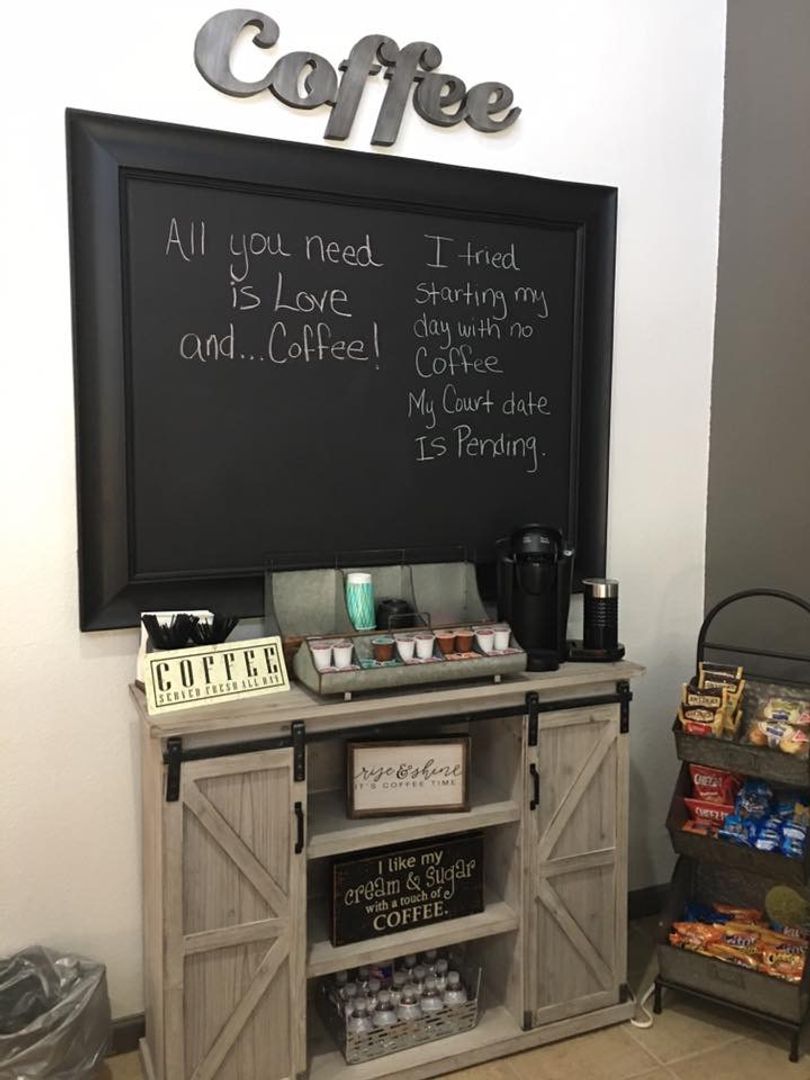 Coffee
All you need
is Love
and...Coffee!
I tried
starting my
day with no
Coffee
My Court date
Is Pending.
COFFEE
SERVED FRESH ALL DAY
rise & shine
IT'S COFFEE TIME
I like my
cream & sugar
with a touch of
COFFEE.
CHEEZ-IT
CHEEZ-IT